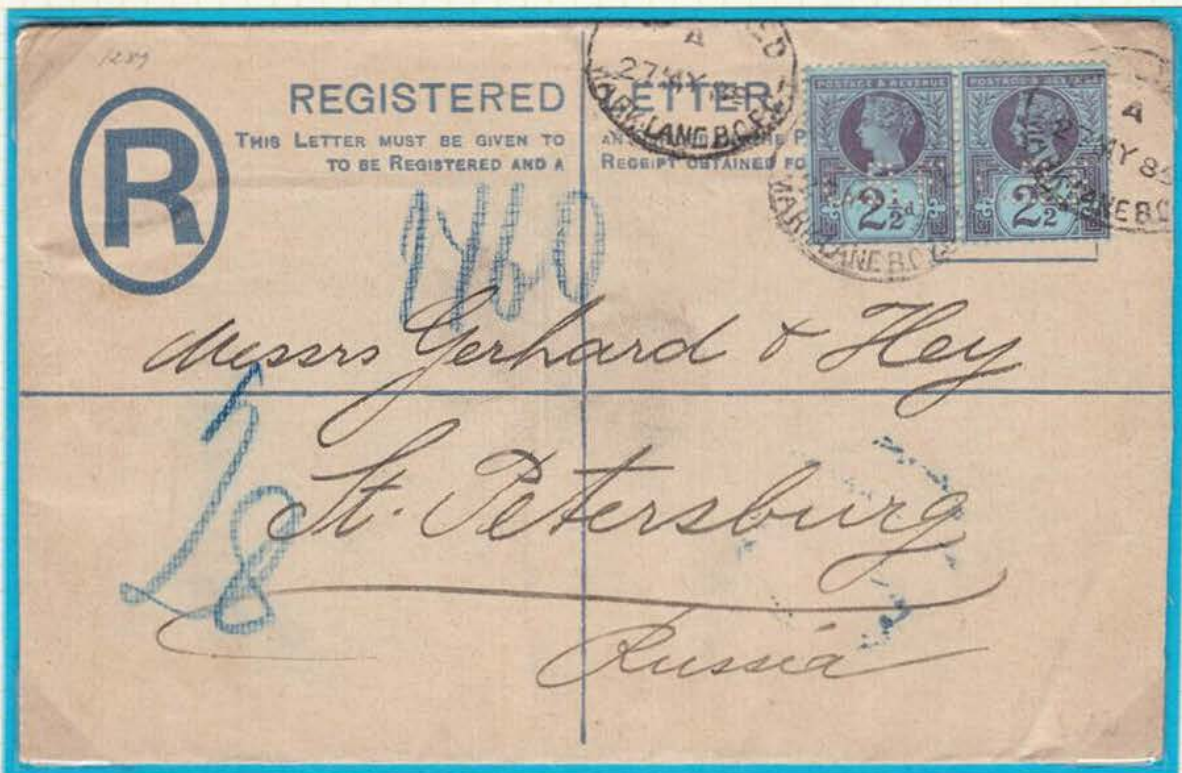 1289
R
REGISTERED LETTER
THIS LETTER MUST BE GIVEN TO
TO BE REGISTERED AND A RECEIPT OBTAINED FO
A
27 MY
MARK LANE B.O. E.C.
POSTAGE & REVENUE
POSTAGE & REVENUE
2½d
2½
A
MY 8
MARK LANE B.O.
LANE B.O.
1760
Messrs Gerhard & Hey
St. Petersburg
Russia
8